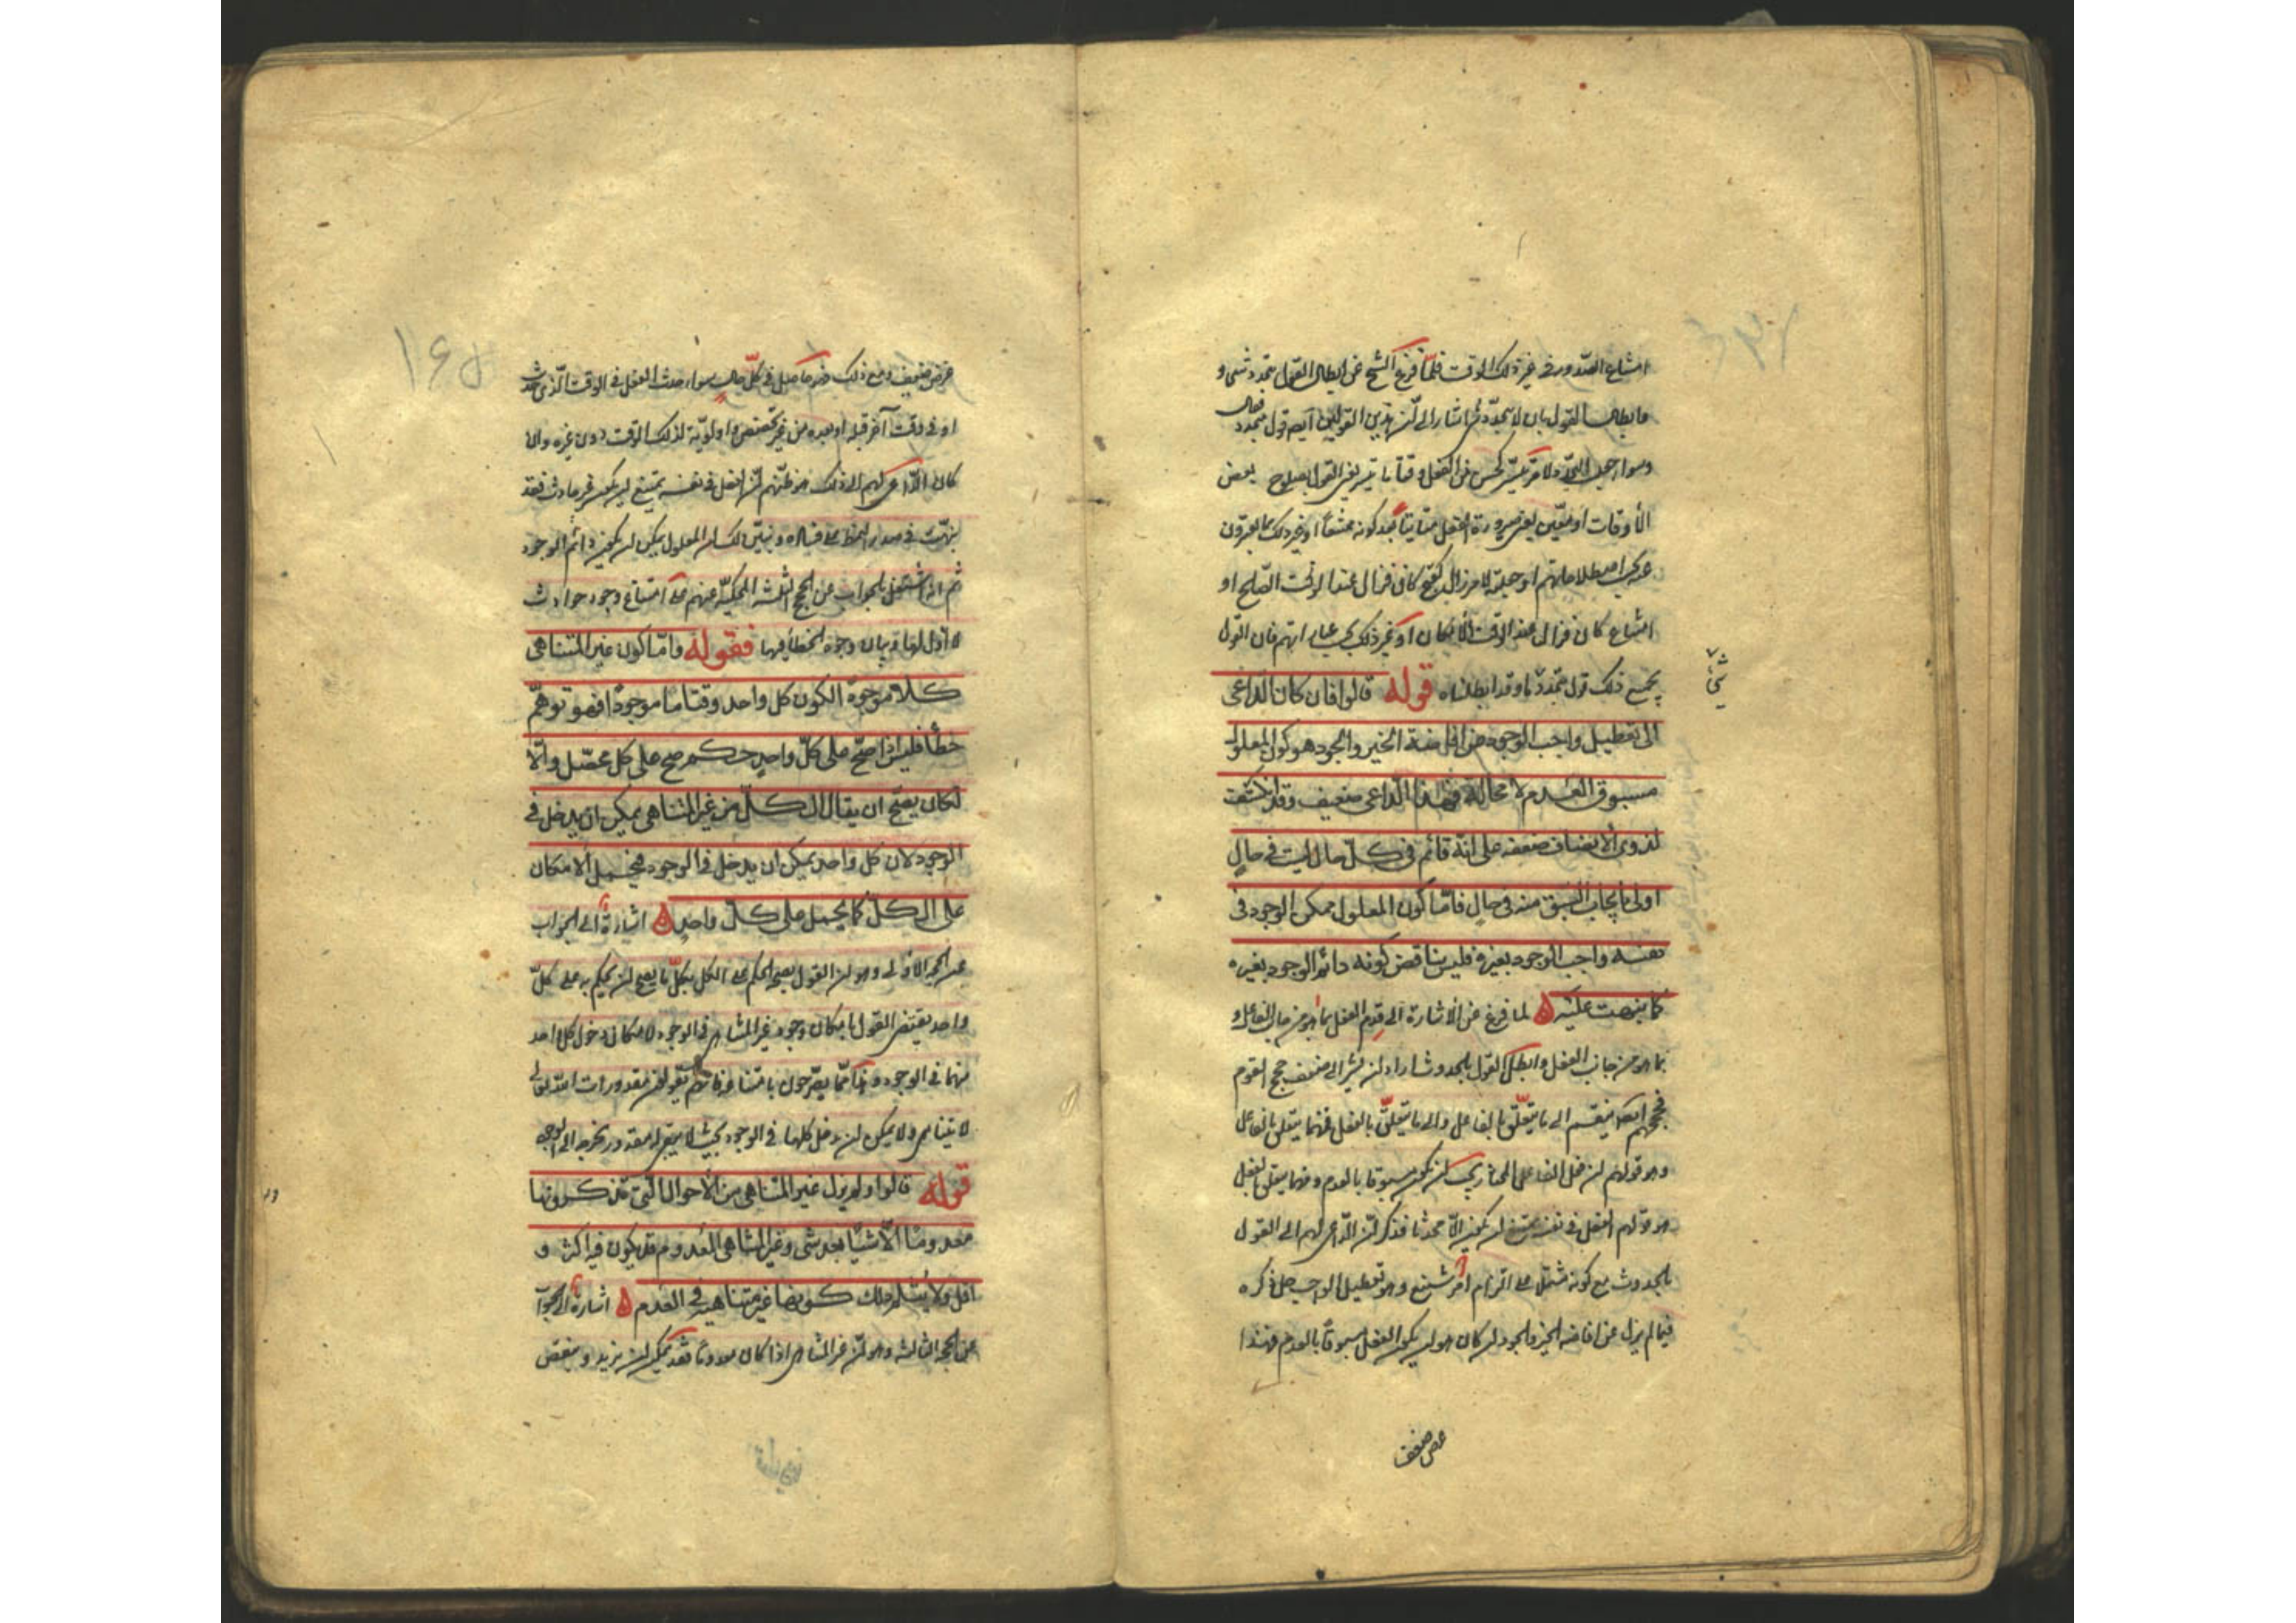 امتناع الصدور فى غير ذلك الوقت فلمّا فرغ الشيخ عن ابطال القول بتجدد شىء و
ما بطال القول بان لا يتجدد شىء اشار الى ان هذين القولين ايضا قول بتجدد حال
وسواء جعل التجدد لامر تيسر كحسن من الفعل وقتا ما تيسر يعنى القول بصلوح بعض
الأوقات او معيّن يعنى صيرورة الفعل متأتيا بعد كونه ممتنعا او غير ذلك مما يعبرون
عنه بحسب اصطلاحاتهم او جعله لامر زال كقبح كان فزال عند الوقت الصالح او
امتناع كان فزال عند الوقت الامكان او غير ذلك بحسب عباراتهم فان القول
بجميع ذلك قول بتجدد ما وقد ابطلناه قوله قالوا فان كان الداعى
الى تعطيل واجب الوجود عن افاضة الخير والجود هو كون المعلول
مسبوق العدم لا محالة فهذا الداعى ضعيف وقد انكشف
لذوى الانصاف ضعفه على انه قائم فى كل حال ليس فى حال
اولى بايجاب السبق منه فى حال فامّا كون المعلول ممكن الوجود فى
نفسه واجب الوجود بغيره فليس يناقض كونه دائم الوجود بغيره
كما نبهت عليه لما فرغ عن الاشارة الى قدم الفعل بما هو من جانب الفاعل و
بما هو من جانب الفعل وابطل القول بالحدوث اراد ان يشير الى ضعف حجج القوم
فحججهم ايضا ينقسم الى ما يتعلّق بالفاعل والى ما يتعلّق بالفعل فمنها يتعلق بالفاعل
وهو قولهم ان فعل الفاعل المختار يجب ان يكون مسبوقا بالعدم ومنها يتعلق بالفعل
هو قولهم الفعل فى نفسه يمتنع ان يكون الا محدثا فذكر ان الداعى لهم الى القول
بالحدوث مع كونه مشتملا على التزام امر شنيع وهو تعطيل الواجب جل ذكره
فيما لم يزل عن افاضة الخير والجود ان كان هو ان يكون الفعل مسبوقا بالعدم فهذا
غرض ضعيف
غرض ضعيف ومع ذلك فهو حاصل فى كل حال سواء حدث الفعل فى الوقت الّذى حدث
او فى وقت آخر قبله او بعده من غير تخصّص واولوية لذلك الوقت دون غيره وان
كان الداعى لهم الى ذلك هو ظنهم ان الفعل فى نفسه يمتنع ان يكون غير حادث فقد
نبّهت فى صدر النمط على فساده وتبيّن لك ان المعلول يمكن ان يكون دائم الوجود
ثم انه اشتغل بالجواب عن الحجج الثلثة المحكية عنهم على امتناع وجود حوادث
لا اول لها وبيان وجوه الخطأ فيها فقوله وامّا كون غير المتناهى
كلا موجودا لكون كل واحد وقتا ما موجودا فهو توهّم
خطأ فليس اذا صحّ على كلّ واحد حكم صح على كل محصّل والّا
لكان يصحّ ان يقال الكلّ من غير المتناهى يمكن ان يدخل فى
الوجود لان كل واحد يمكن ان يدخل فى الوجود فيحمل الامكان
على الكلّ كما يحمل على كلّ واحد اشارة الى الجواب
عن الحجة الاولى وهو ان القول بصحة الحكم على الكل بكلّ ما يصح ان يحكم به على كلّ
واحد يقتضى القول بامكان وجود غير المتناهى فى الوجود لامكان دخول كل واحد
منها فى الوجود وهذا ممّا يصرّحون بامتناعه فانهم يقولون مقدورات اللّه تعالى
لا يتناهى ولا يمكن ان يدخل كلها فى الوجود بحيث لا يبقى له مقدور يخرجه الى الوجود
قوله قالوا ولم يزل غير المتناهى من الأحوال الّتى تذكرونها
معدوما الّا شيئا بعد شىء وغير المتناهى المعدوم قد يكون فيه اكثر و
اقل ولا يثلم ذلك كونها غير متناهية فى العدم اشارة الى الجواب
عن الحجة الثالثة وهو ان غير المتناهى اذا كان معدوما فقد يمكن ان يزيد وينقص